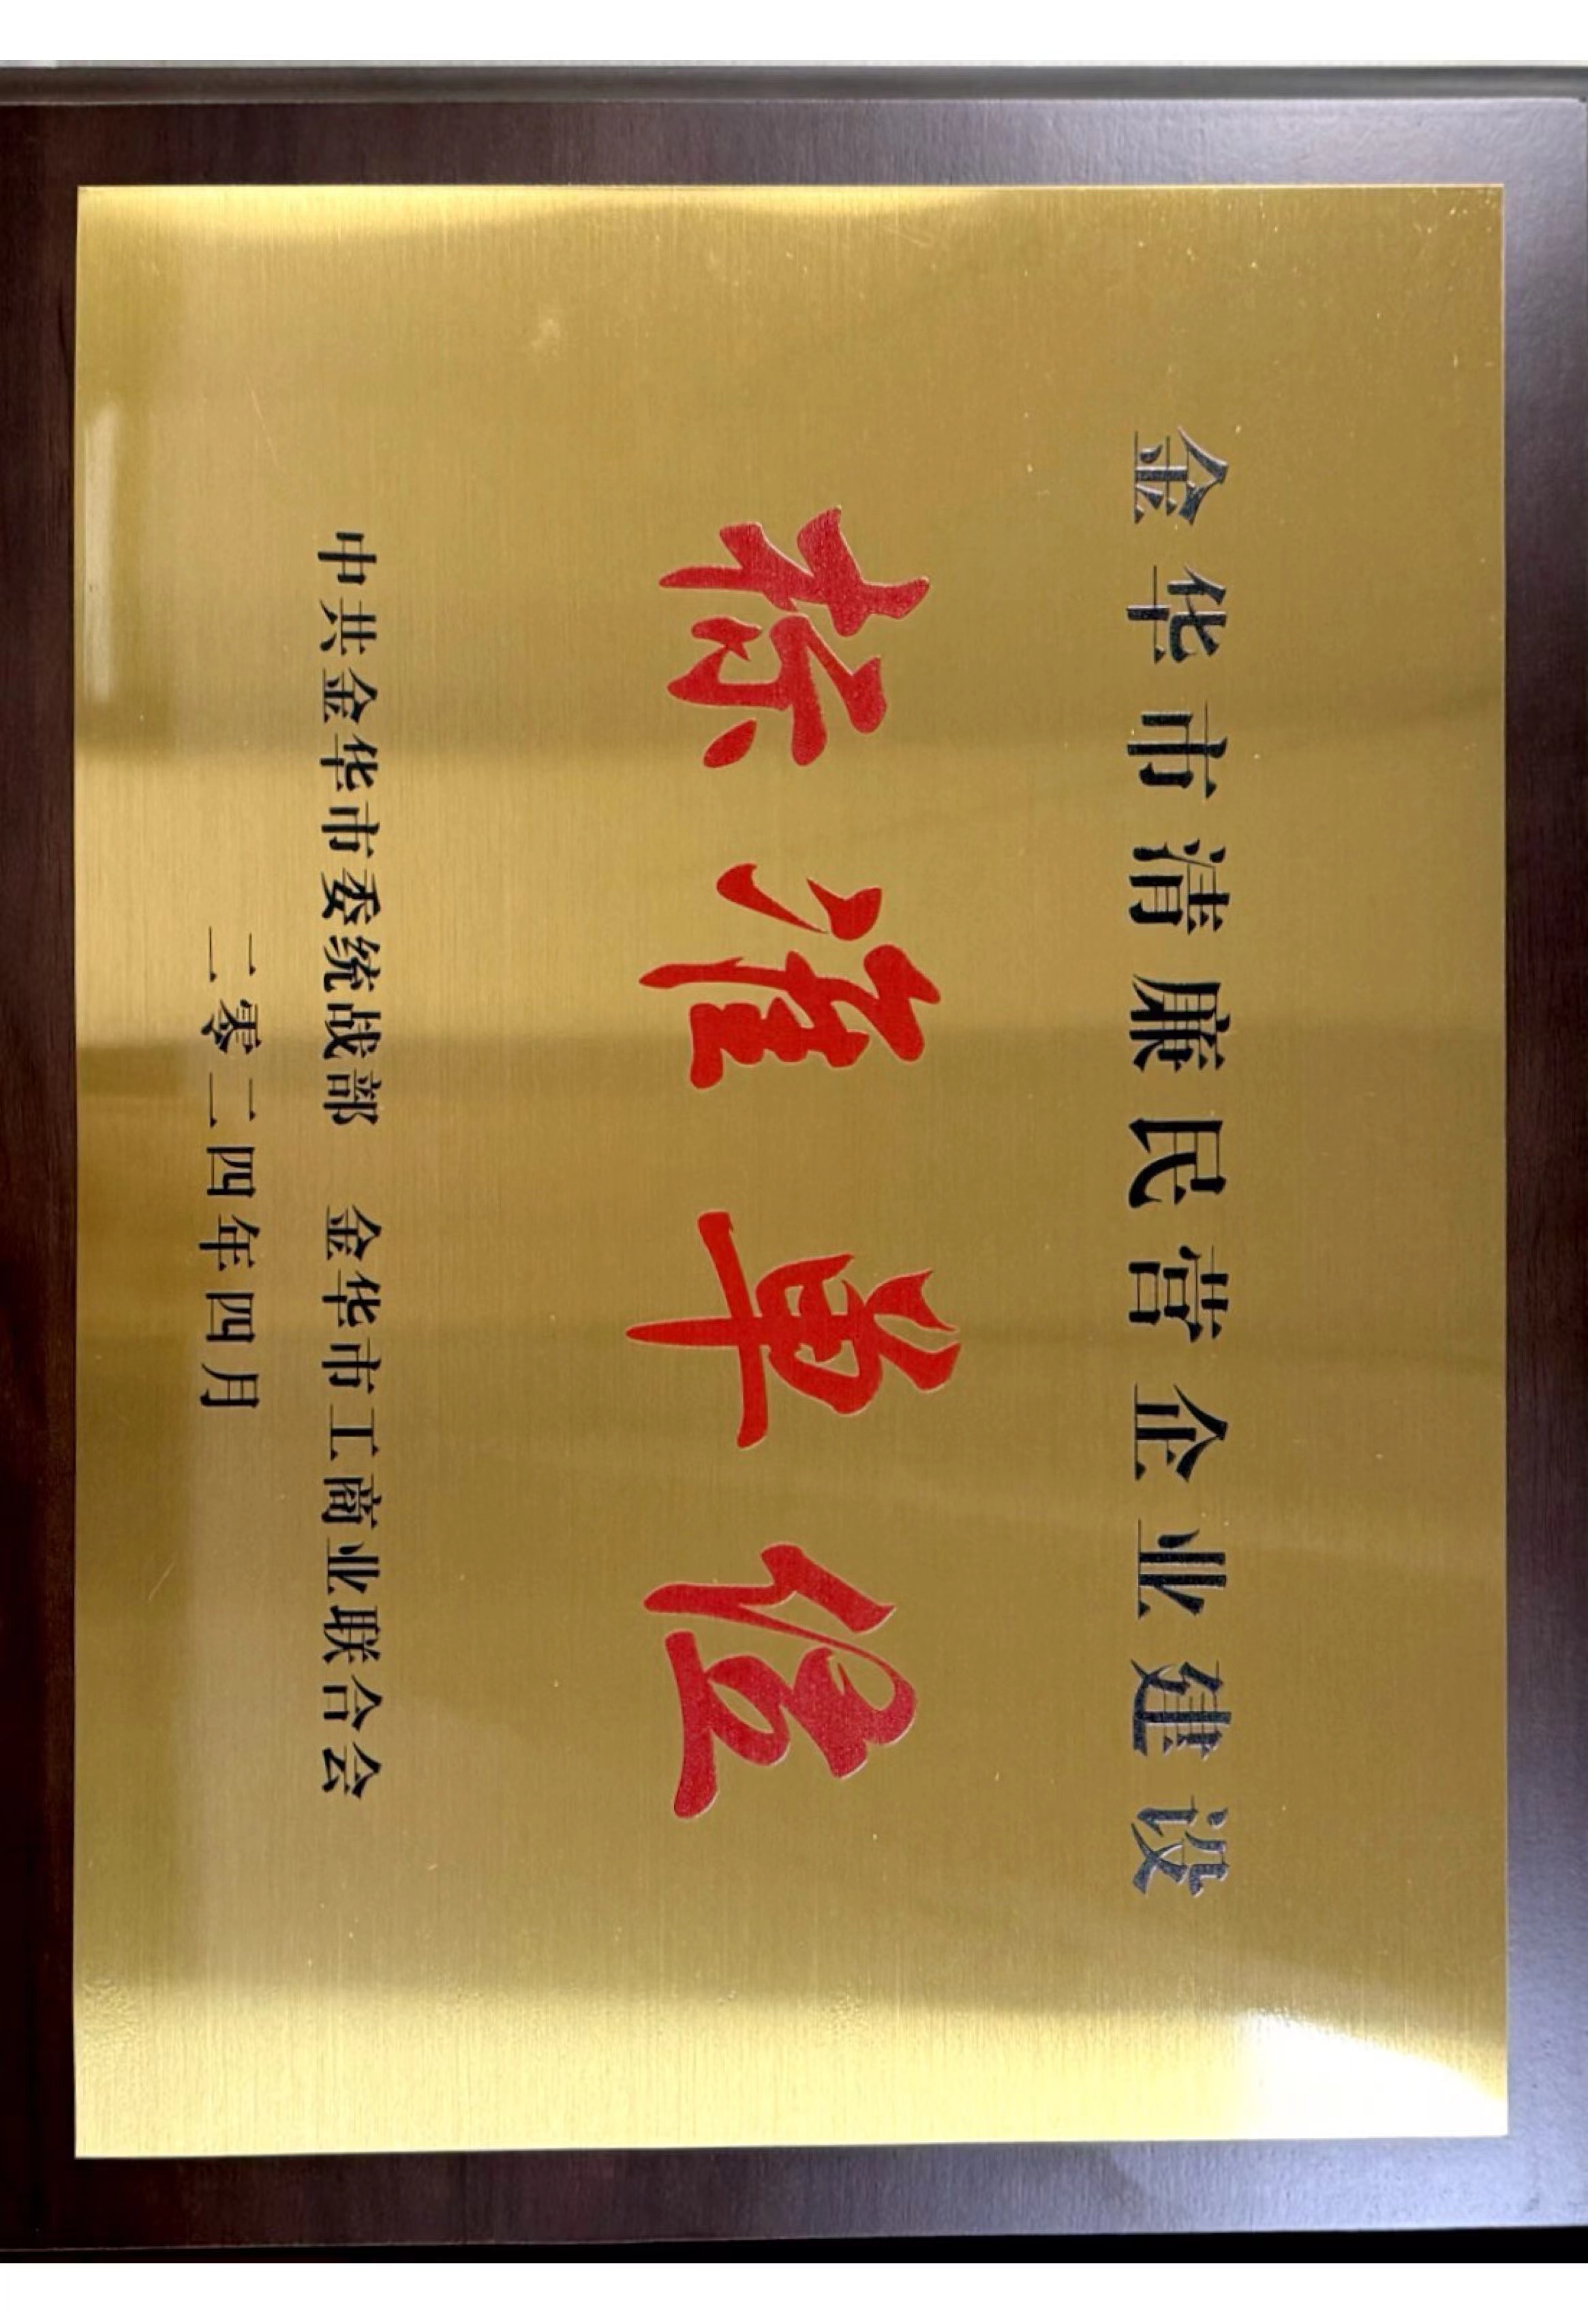 金华市清廉民营企业建设
标准单位
中共金华市委统战部 金华市工商业联合会
二零二四年四月